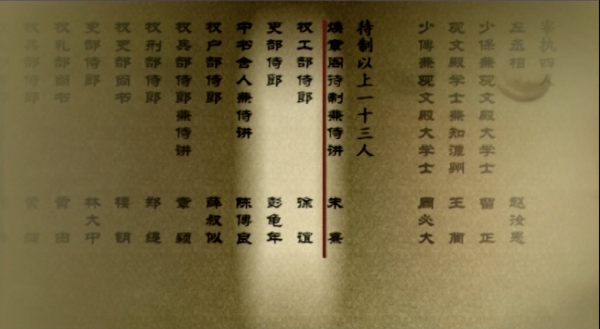 宰执四人
丞相 赵汝愚
少保兼观文殿大学士 留正
观文殿学士兼知潭州 王蔺
少傅兼观文殿大学士 周必大
待制以上一十三人
焕章阁待制兼侍讲 朱熹
权工部侍郎 徐谊
吏部侍郎 彭龟年
中书舍人兼侍讲 陈傅良
权户部侍郎 薛叔似
权兵部侍郎兼侍讲 章颖
权刑部侍郎 郑湜
权吏部尚书 楼钥
吏部侍郎 林大中
权礼部尚书 黄由
权兵部侍郎 黄